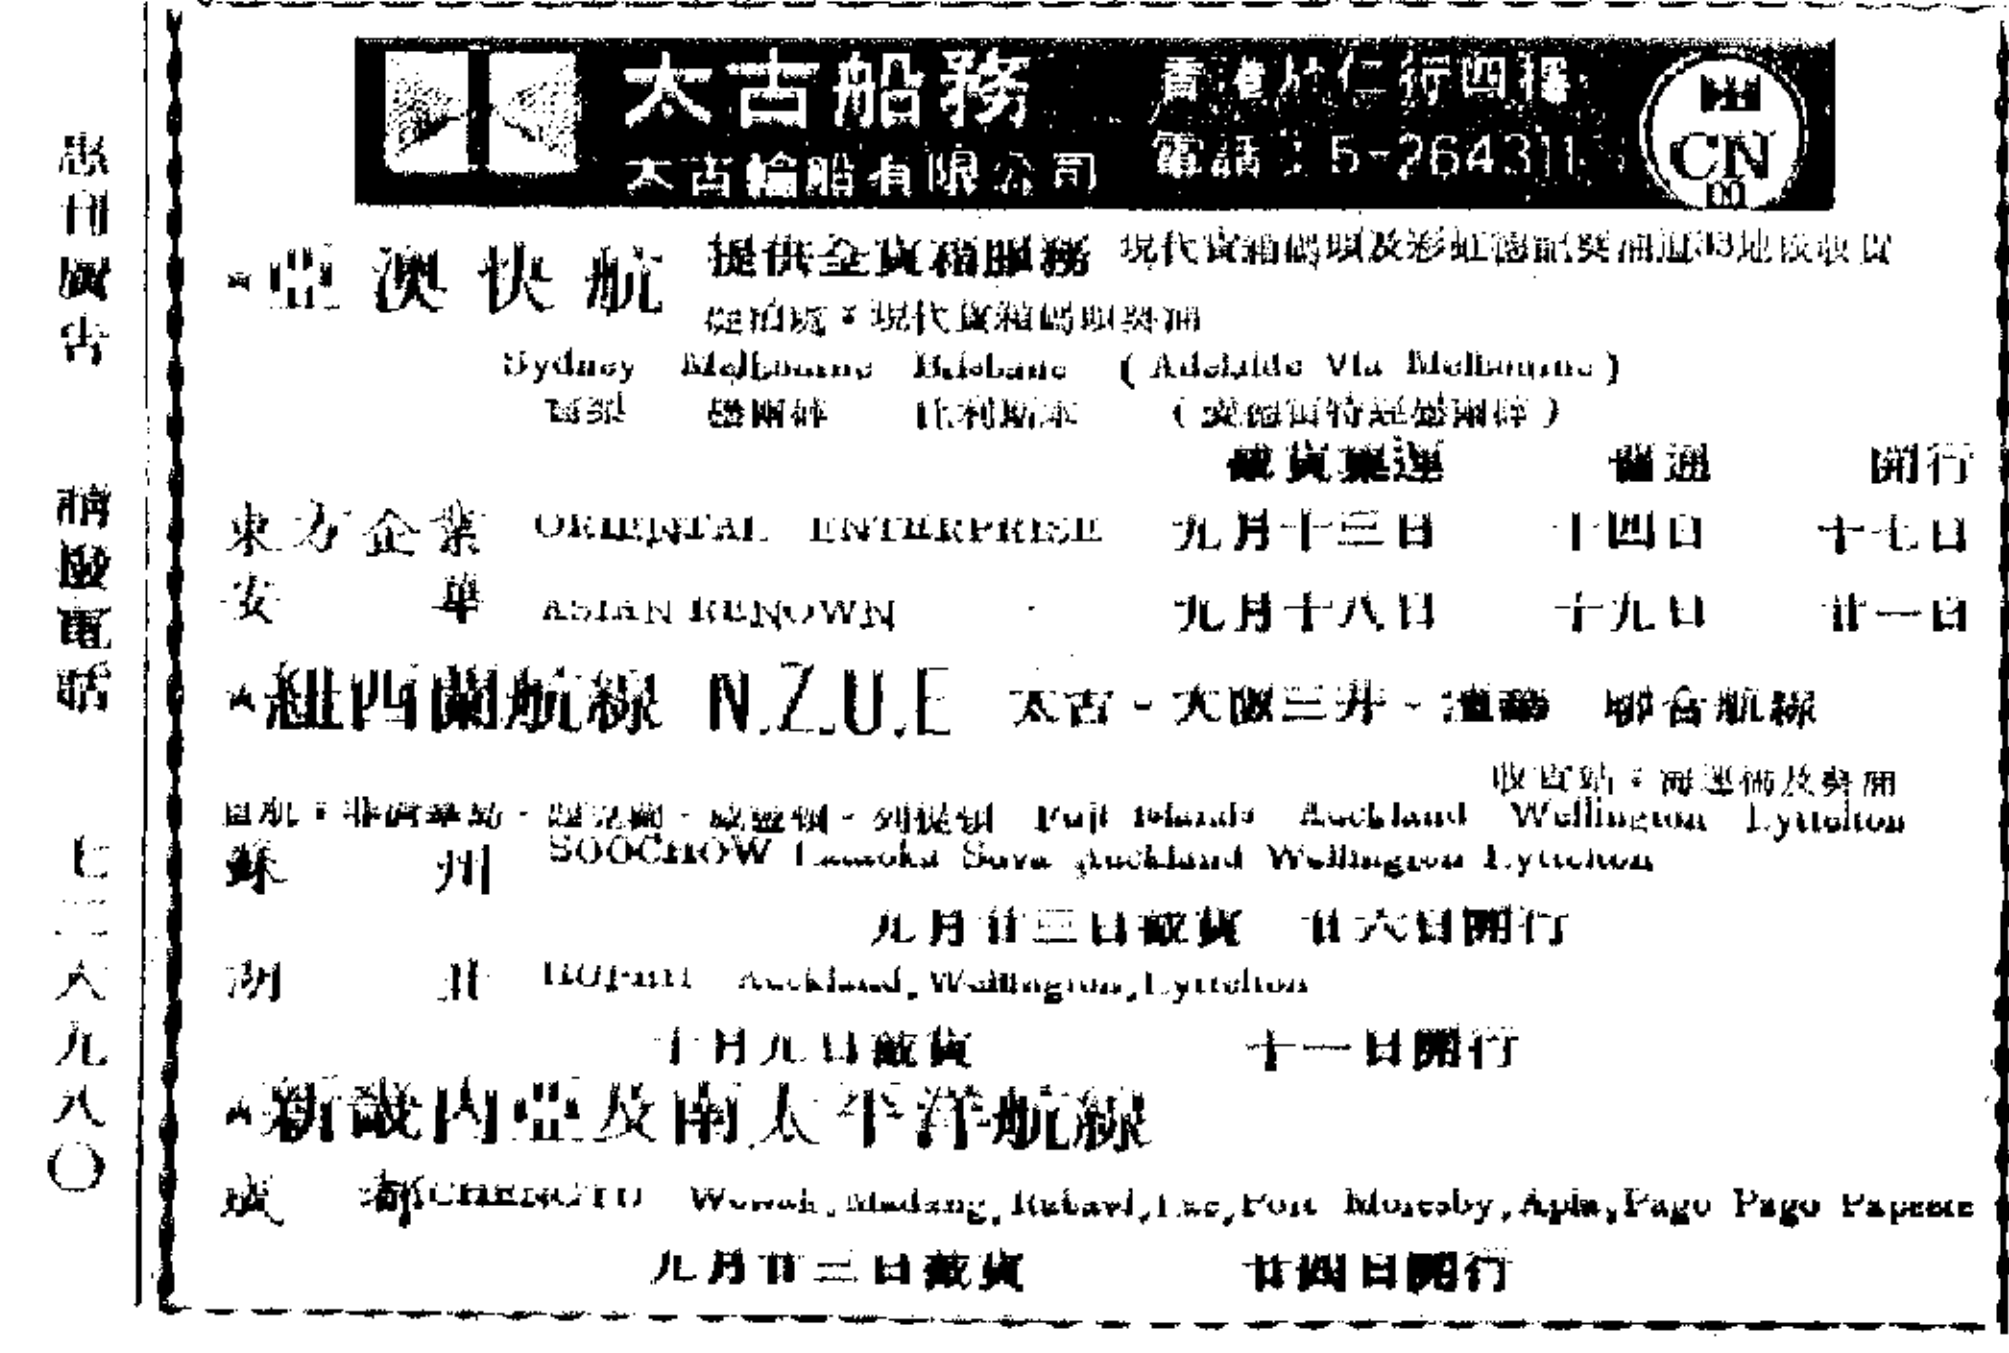 太古船務
太古輪船有限公司
香港於仁行四樓
電話：5-264311
亞澳快航 提供全貨箱服務 現代貨箱碼頭及
現代貨箱碼頭葵涌
Sydney Melbourne Brisbane (Adelaide Via Melbourne)
雪梨 墨爾砵 比利斯本
截貨 普通 開行
東方企業 ORIENTAL ENTERPRISE 九月十三日 十四日 十七日
安華 ASIAN RENOWN 九月十八日 十九日 廿一日
紐西蘭航線 N.Z.U.E 太古-大阪三井-渣華 聯合航線
收貨站：海運倉及葵涌
Fuji Islands Auckland Wellington Lyttelton
蘇州 SOOCHOW Lautoka Suva Auckland Wellington Lyttelton
九月廿三日截貨 廿六日開行
湖北 HUPEH Auckland, Wellington, Lyttelton
十月九日截貨 十一日開行
新畿內亞及南太平洋航線
成都 CHENGTU Wewak, Madang, Rabaul, Lae, Port Moresby, Apia, Pago Pago Papeete
九月廿三日截貨 廿四日開行
CN
惠刊廣告 請撥電話 七二八九八〇